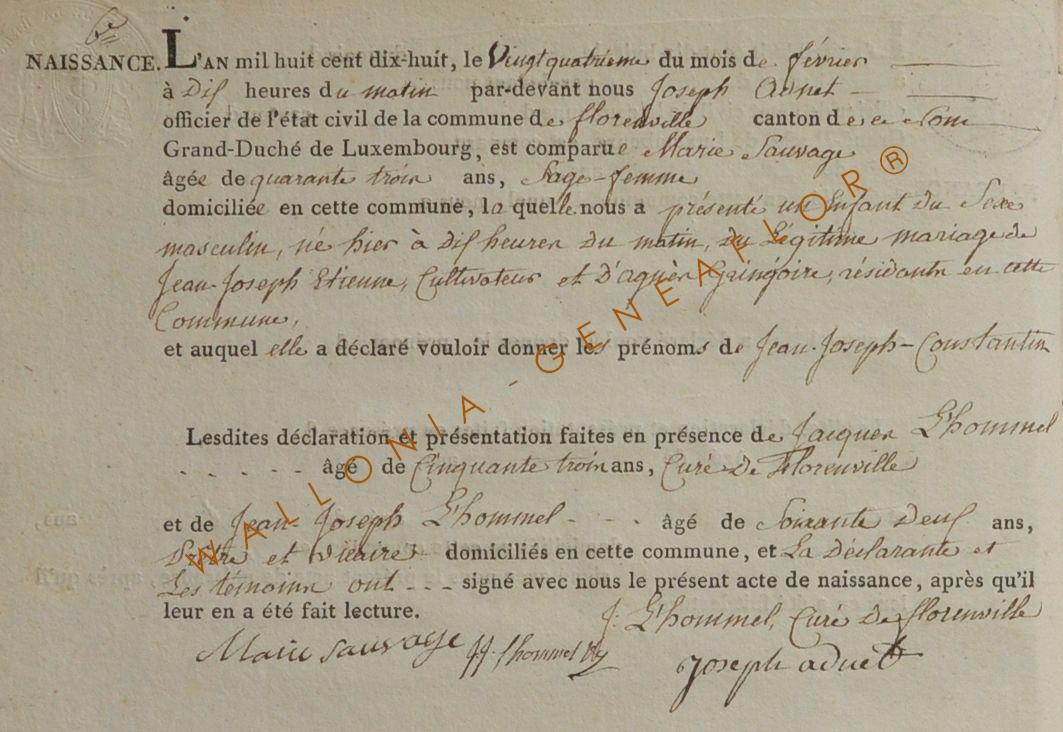 NAISSANCE. L'AN mil huit cent dix-huit, le Vingt quatrieme du mois de février
à Dix heures du matin par-devant nous Joseph Adnet
officier de l'état civil de la commune de florenville canton de
Grand-Duché de Luxembourg, est comparue Marie Sauvage
âgée de quarante trois ans, Sage-femme
domiciliée en cette commune, la quelle nous a présenté un Enfant du Sexe
masculin, né hier à dix heures du matin, du Légitime mariage de
Jean-Joseph Etienne, Cultivateur et D'agnès Gringoire, résidants en cette
Commune,
et auquel elle a déclaré vouloir donner les prénoms de Jean-Joseph-Constantin
Lesdites déclaration et présentation faites en présence de Jacques L'hommel
- - - - - - âgé de Cinquante trois ans, Curé De Florenville
et de Jean-Joseph L'hommel - - - âgé de Soixante Deux ans,
Prêtre et vicaire domiciliés en cette commune, et La Déclarante et
Les témoins ont - - - signé avec nous le présent acte de naissance, après qu'il
leur en a été fait lecture. J. L'hommel, Curé De florenville
Marie sauvage J.J. lhommel joseph adnet
WALLONIA - GENEAFLOR®